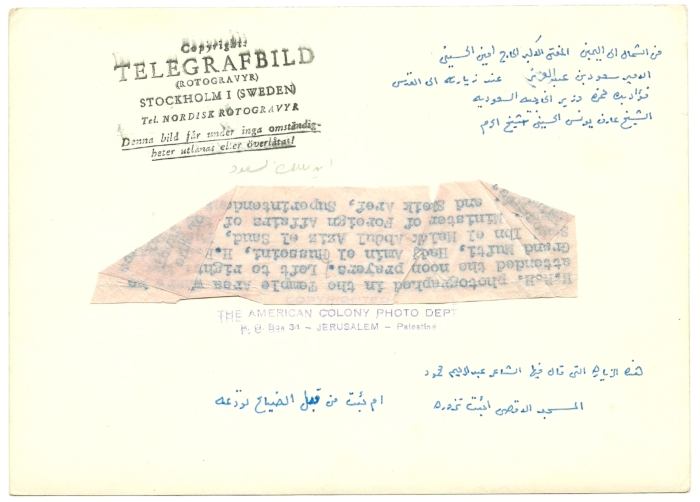 Copyright:
TELEGRAFBILD
(ROTOGRAVYR)
STOCKHOLM 1 (SWEDEN)
Tel. NORDISK ROTOGRAVYR
Denna bild får under inga omständig-
heter utlånas eller överlåtas!
من الشمال الى اليمين المفتي الاكبر الحاج امين الحسيني
الامير سعود بن عبدالعزيز عند زيارته الى القدس
فؤاد بك حمزه وزير الخارجيه السعوديه
الشيخ عارف يونس الحسيني شيخ الحرم
H.R.H. photographed in the Temple Area
attended the noon prayers. Left to right
Grand Mufti, Haj Amin el Husseini, H.R.
Ibn el Malek Abdul Aziz el Saud,
Minister of Foreign Affairs of
and Sheik Aref, Superintende
COPYRIGHTED
THE AMERICAN COLONY PHOTO DEPT
P. O. Box 34 – JERUSALEM – Palestine
هذه الزياره التي قال فيها الشاعر عبدالرحيم محمود
المسجد الاقصى اجئت تزوره ام جئت من قبل الضياع تودعه